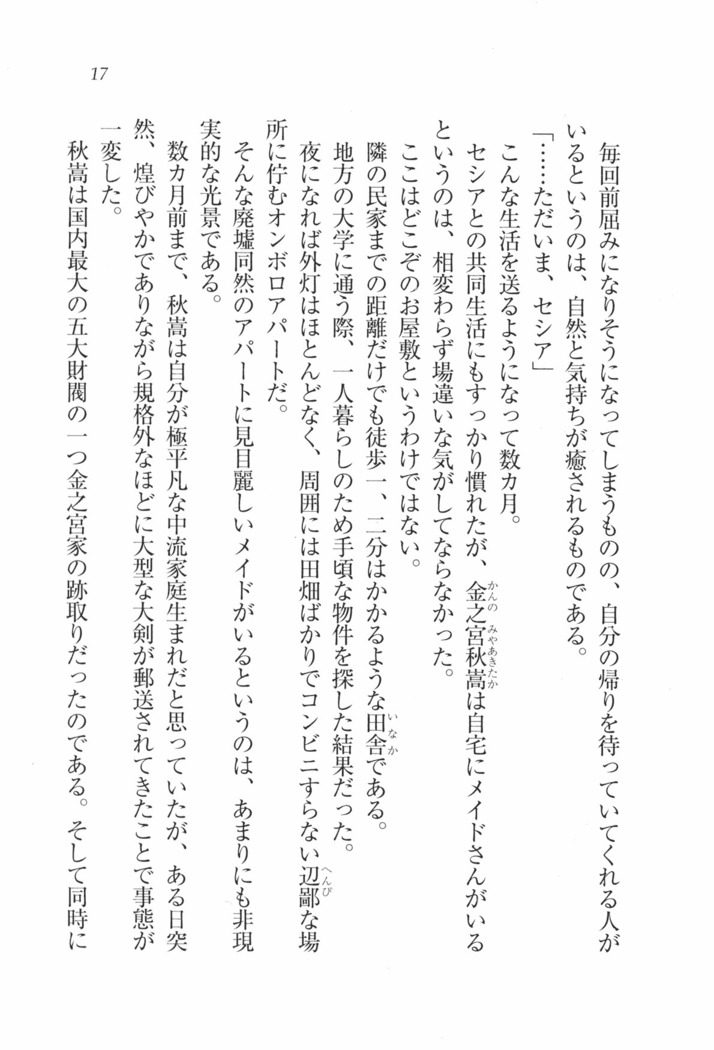 17
毎回前屈みになりそうになってしまうものの、自分の帰りを待っていてくれる人が
いるというのは、自然と気持ちが癒されるものである。
「……ただいま、セシア」
こんな生活を送るようになって数カ月。
セシアとの共同生活にもすっかり慣れたが、金之宮秋嵩は自宅にメイドさんがいる
かんの みやあきたか
というのは、相変わらず場違いな気がしてならなかった。
ここはどこぞのお屋敷というわけではない。
隣の民家までの距離だけでも徒歩一、二分はかかるような田舎である。
いなか
地方の大学に通う際、一人暮らしのため手頃な物件を探した結果だった。
夜になれば外灯はほとんどなく、周囲には田畑ばかりでコンビニすらない辺鄙な場
へんぴ
所に佇むオンボロアパートだ。
そんな廃墟同然のアパートに見目麗しいメイドがいるというのは、あまりにも非現
実的な光景である。
数カ月前まで、秋嵩は自分が極平凡な中流家庭生まれだと思っていたが、ある日突
然、煌びやかでありながら規格外なほどに大型な大剣が郵送されてきたことで事態が
一変した。
秋嵩は国内最大の五大財閥の一つ金之宮家の跡取りだったのである。そして同時に